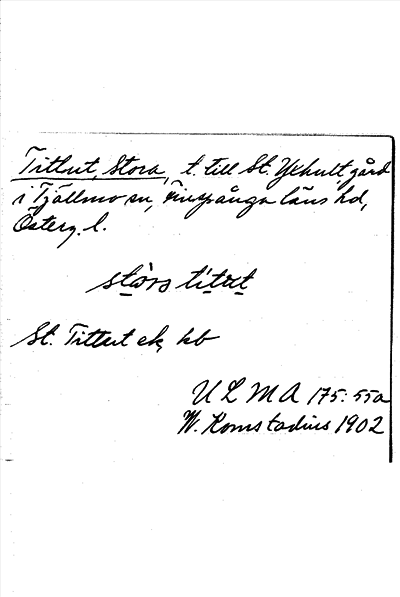 Tittut, Stora, t. till St. Ykhult, gård
i Tjällmo sn, Finspånga läns hd,
Österg. l.
stòra títut
St. Tittut ek, hb
ULMA 175: 55a
W. Romstadius 1902